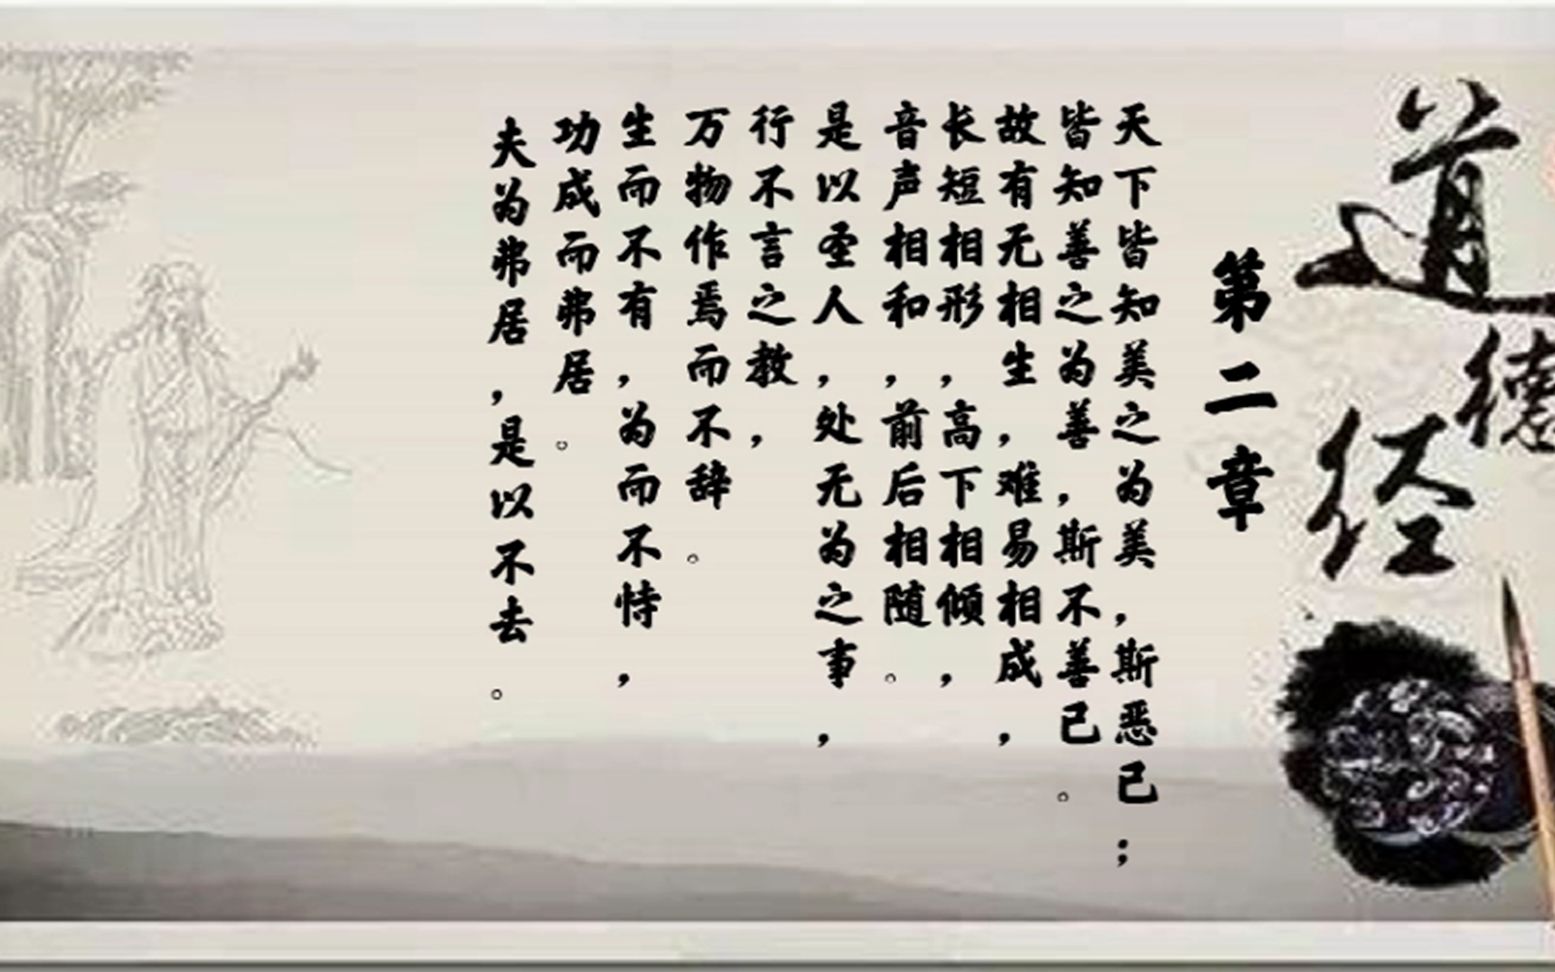 道德经
第二章
天下皆知美之为美,斯恶已;
皆知善之为善,斯不善已。
故有无相生,难易相成,
长短相形,高下相倾,
音声相和,前后相随。
是以圣人,处无为之事,
行不言之教,
万物作焉而不辞。
生而不有,为而不恃,
功成而弗居。
夫为弗居,是以不去。